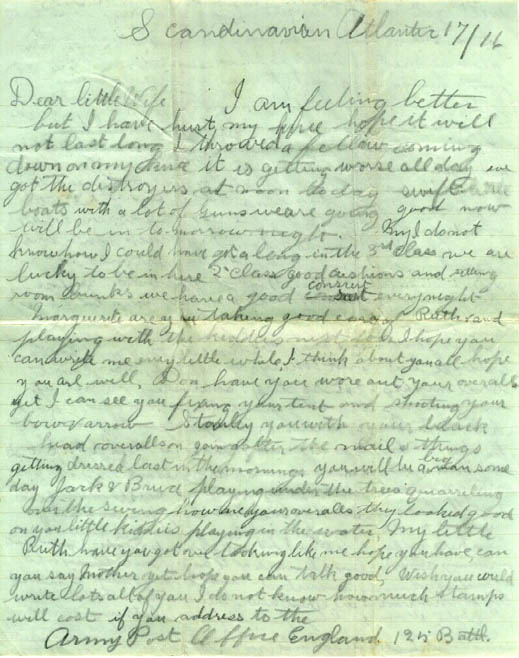 Scandinavian Atlantic 17/16
Dear little Wife I am feeling better
but I have hurt my knee hope it will
not last long I throwed a fellow coming
down on my knee it is getting worse all day we
got the destroyers at noon today swift little
boats with a lot of guns we are going good now
will be in to-morrow night. My I do not
know how I could have got along in the 3rd class we are
lucky to be in here 2nd class good cushions and setting
room bunks we have a good concert every night
Marguerite are you taking good care of Ruth and
playing with the kiddies next I hope you
can write me every little while I think about you all hope
you are well, Don have you wore out your overalls
yet I can see you fixing your tent and shooting your
bow & arrow Stanley you with your black
head & overalls on going after the mail & things
getting dressed last in the mornings you will be a big man some
day Jack & Bruce playing under the trees quarreling
over the swing how are your overalls they looked good
on you little kiddies playing in the water, My little
Ruth have you got over looking like me hope you have, can
you say Mother yet hope you can talk good, Wish you could
write lots all of you I do not know how much stamps
will cost if you address to the
Army Post Office England. 12th Batt.